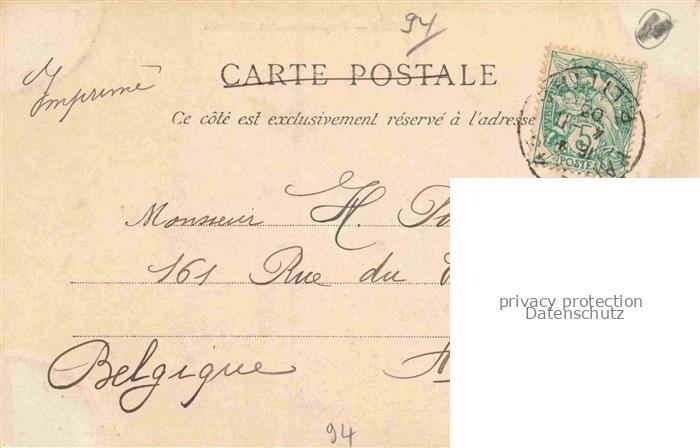 94
Imprimé
CARTE POSTALE
Ce côté est exclusivement réservé à l'adresse
5
POSTES
Monsieur H.
161 Rue du
Belgique
94
privacy protection
Datenschutz